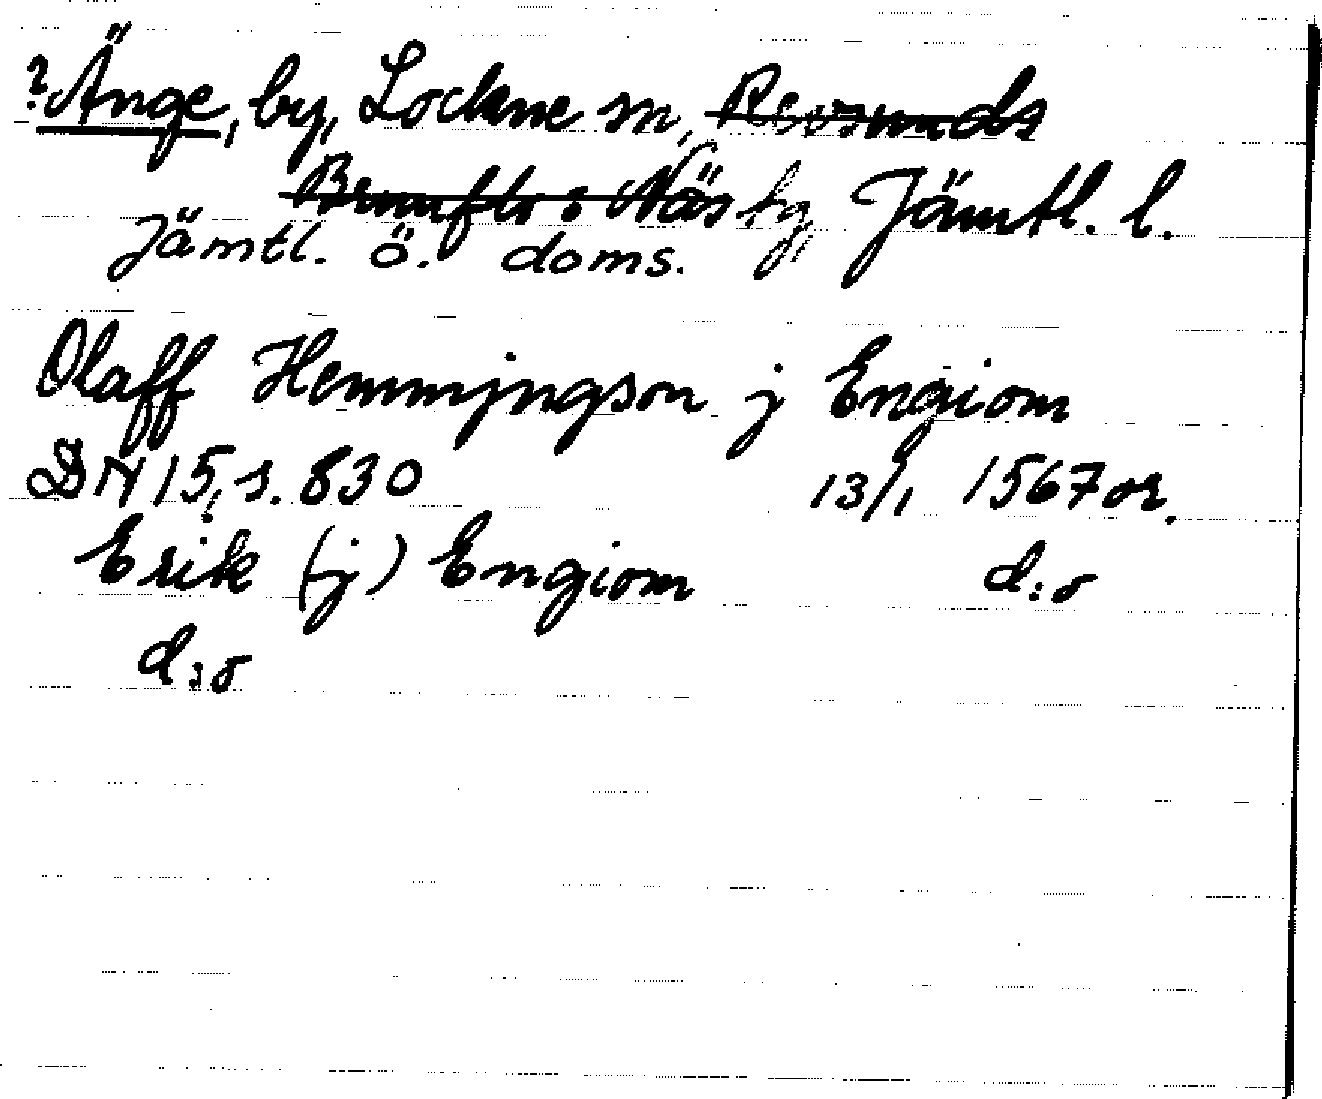 ? Änge, by, Lockne sn, Revsunds
Brunflo o Näs tg, Jämtl. l.
Jämtl. ö. doms.
Olaff Hemmjngson j Engiom
DN 15, s. 830 13/1 1567 or.
Erik (j) Engiom d:o
d:o